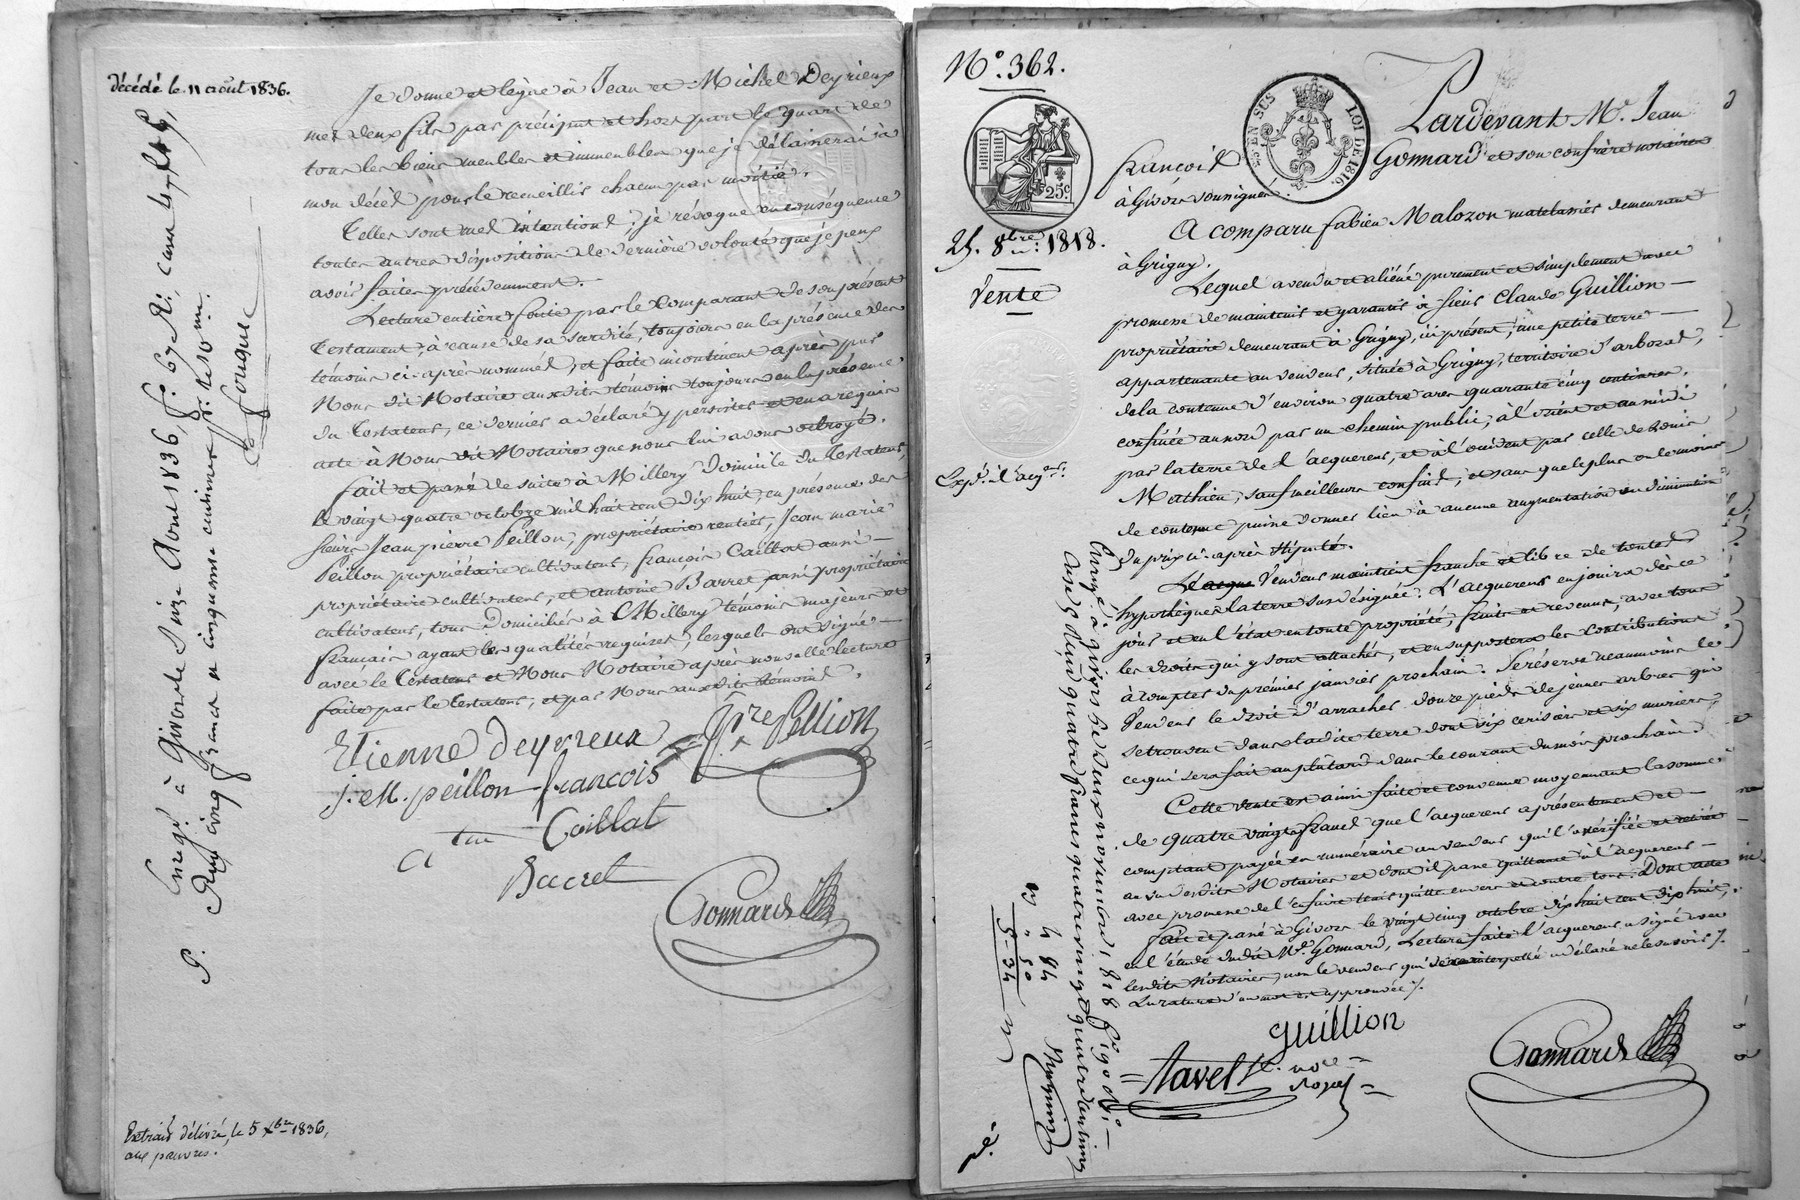 décédé le 11 août 1836.
Je donne et lègue à Jean et Michel Deyrieux
mes deux fils par préciput et hors part le quart de
tous les biens meubles et immeubles que je délaisserai à
mon décès pour le recueillir chacun par moitié.
Telles sont mes intentions; je révoque en conséquence
toutes autres dispositions de dernière volonté que je peux
avoir faites précédemment.
Lecture entière faite par le comparant de son présent
Testament, à cause de sa surdité, toujours en la présence des
témoins ci-après nommés, et faite incontinent après par
Nous dit Notaire aux dits témoins toujours en la présence
du Testateur, ce dernier a déclaré y persister et en a requis
acte à Nous dit Notaire que nous lui avons octroyé.
fait et passé de suite à Millery domicile du Testateur,
le vingt quatre octobre mil huit cent dix huit, en présence des
sieurs Jean pierre Peillon, propriétaire rentier, Jean marie
Peillon propriétaire cultivateur, françois Caillat aussi
propriétaire cultivateur, et antoine Barret aussi propriétaire
cultivateur, tous domiciliés à Millery témoins majeurs et
français ayant les qualités requises, lesquels ont signé
avec le Testateur et Nous Notaire après nouvelle lecture
faite par le testateur, et par Nous aux dits témoins.
Etienne deyrieux
jp.re Pellion
j. M. peillon françois
Caillat
a tne
Barret
Gonnard
Enregé à Givors le seize Aout 1836, fo. 67 Ro. case 4, 5
Reçu cinq francs et cinquante centimes pr. le 10me.
Extrait délivré, le 5 xbre 1836,
aux pauvres.
No. 362.
ES EN SUS
LOI DE 1816.
25c
25. 8bre. 1818.
Vente
Expé. à l'acqr.
Pardevant Me. Jean
françois Gonnard et son confrère notaires
à Givors soussignés
A comparu fabien Malozon matelassier demeurant
à Grigny.
Lequel a vendu et aliéné purement et simplement avec
promesse de maintenir et garantir à sieur Claude Guillion
propriétaire demeurant à Grigny, ici présent, une petite terre
appartenante au vendeur, située à Grigny, territoire d'arboras,
de la contenue d'environ quatre ares quarante cinq centiares,
confinée au nord par un chemin public, à l'orient et au midi
par la terre de l'acquereur, et à l'occident par celle de Denis
Mathieu, sauf meilleurs confins, et sans que le plus ou le moins
de contenue puisse donner lieu à aucune augmentation ou diminution
du prix ci-après stipulé.
Le acque Vendeur maintient franche et libre de toutes
hypothèques la terre sus désignée. L'acquereur en jouira dès ce
jour et en l'état en toute propriété, fruits et revenus, avec tous
les droits qui y sont attachés, et en supportera les contributions
à compter du premier janvier prochain. Se réserve néanmoins le
Vendeur le droit d'arracher douze pieds de jeunes arbres qui
se trouvent dans la dite terre dont six cerisiers et six muriers,
ce qui sera fait au plus tard dans le courant du mois prochain.
Cette vente est ainsi faite et convenue moyennant la somme
de quatre vingts francs que l'acquereur a présentement et
comptant payée en numéraire au vendeur qui l'a vérifiée et retirée
au vu desdits Notaires et dont il passe quittance à l'acquereur
avec promesse de l'en faire tenir quitte envers et contre tous. Dont acte
fait et passé à Givors le vingt cinq octobre dix huit cent dix huit,
en l'étude dudit Me. Gonnard, Lecture faite l'acquereur a signé avec
lesdits Notaires, non le vendeur qui de ce interpellé a déclaré ne le savoir /.
La rature d'un mot est approuvée /.
guillion
Tavel
Gonnard
Enregé à givors le deux novembre 1818 fo. 90
Reçu quatre francs quatre vingt quatre centimes
4 84
" 50
5-34